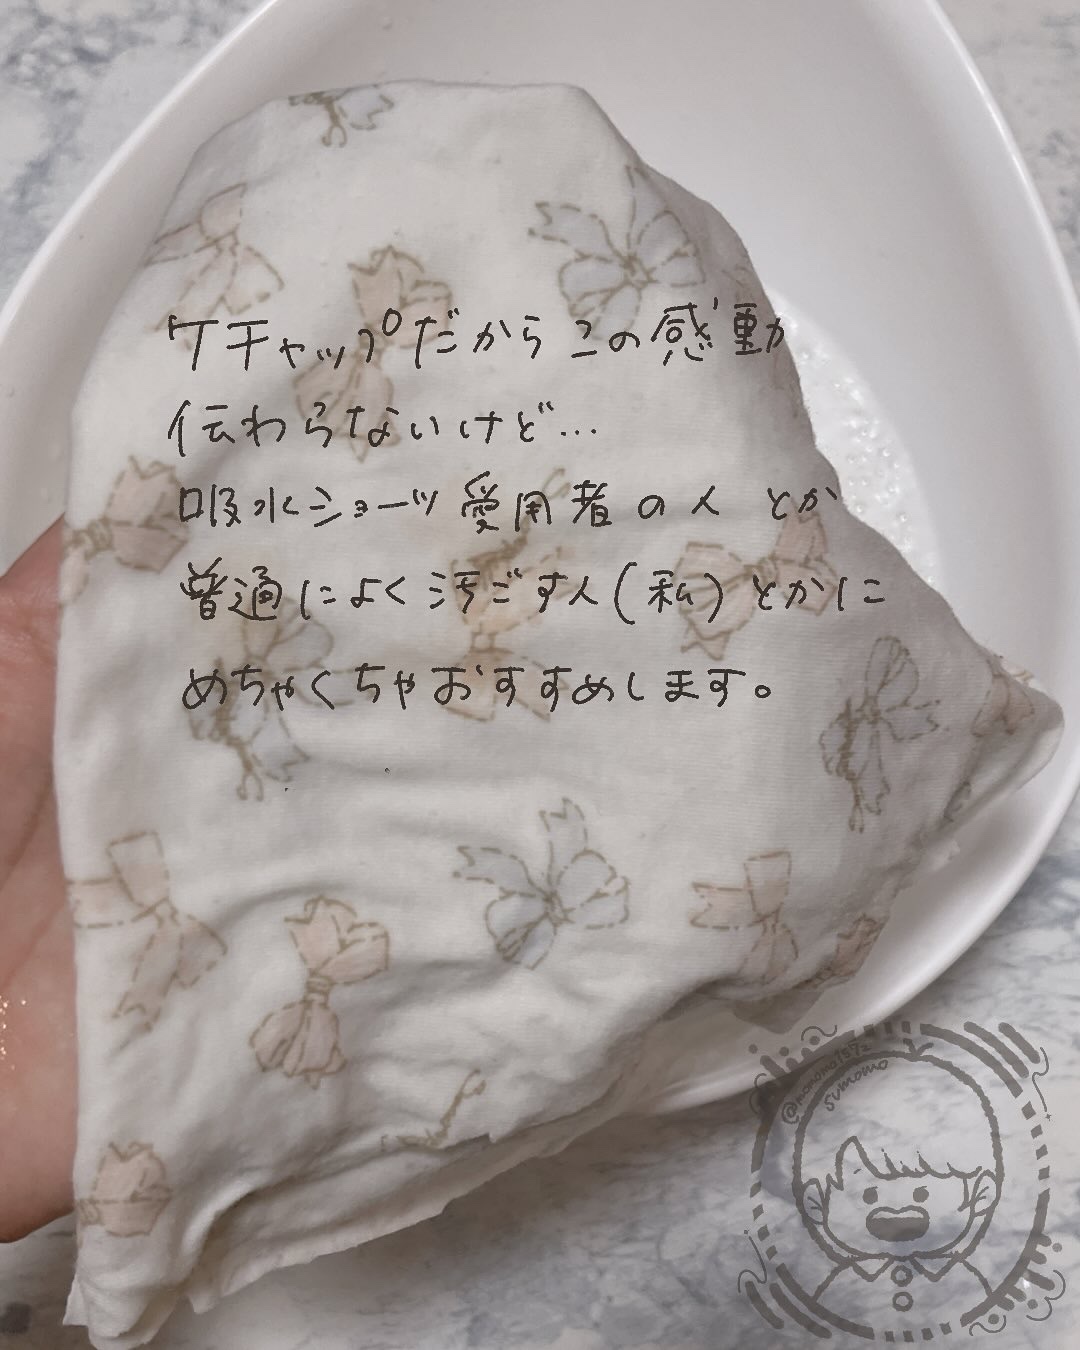 ケチャップだからこの感動
伝わらないけど…
吸水ショーツ愛用者の人とか
普通によく汚ごす人(私)とかに
めちゃくちゃおすすめします。
@momomo1572
sumomo